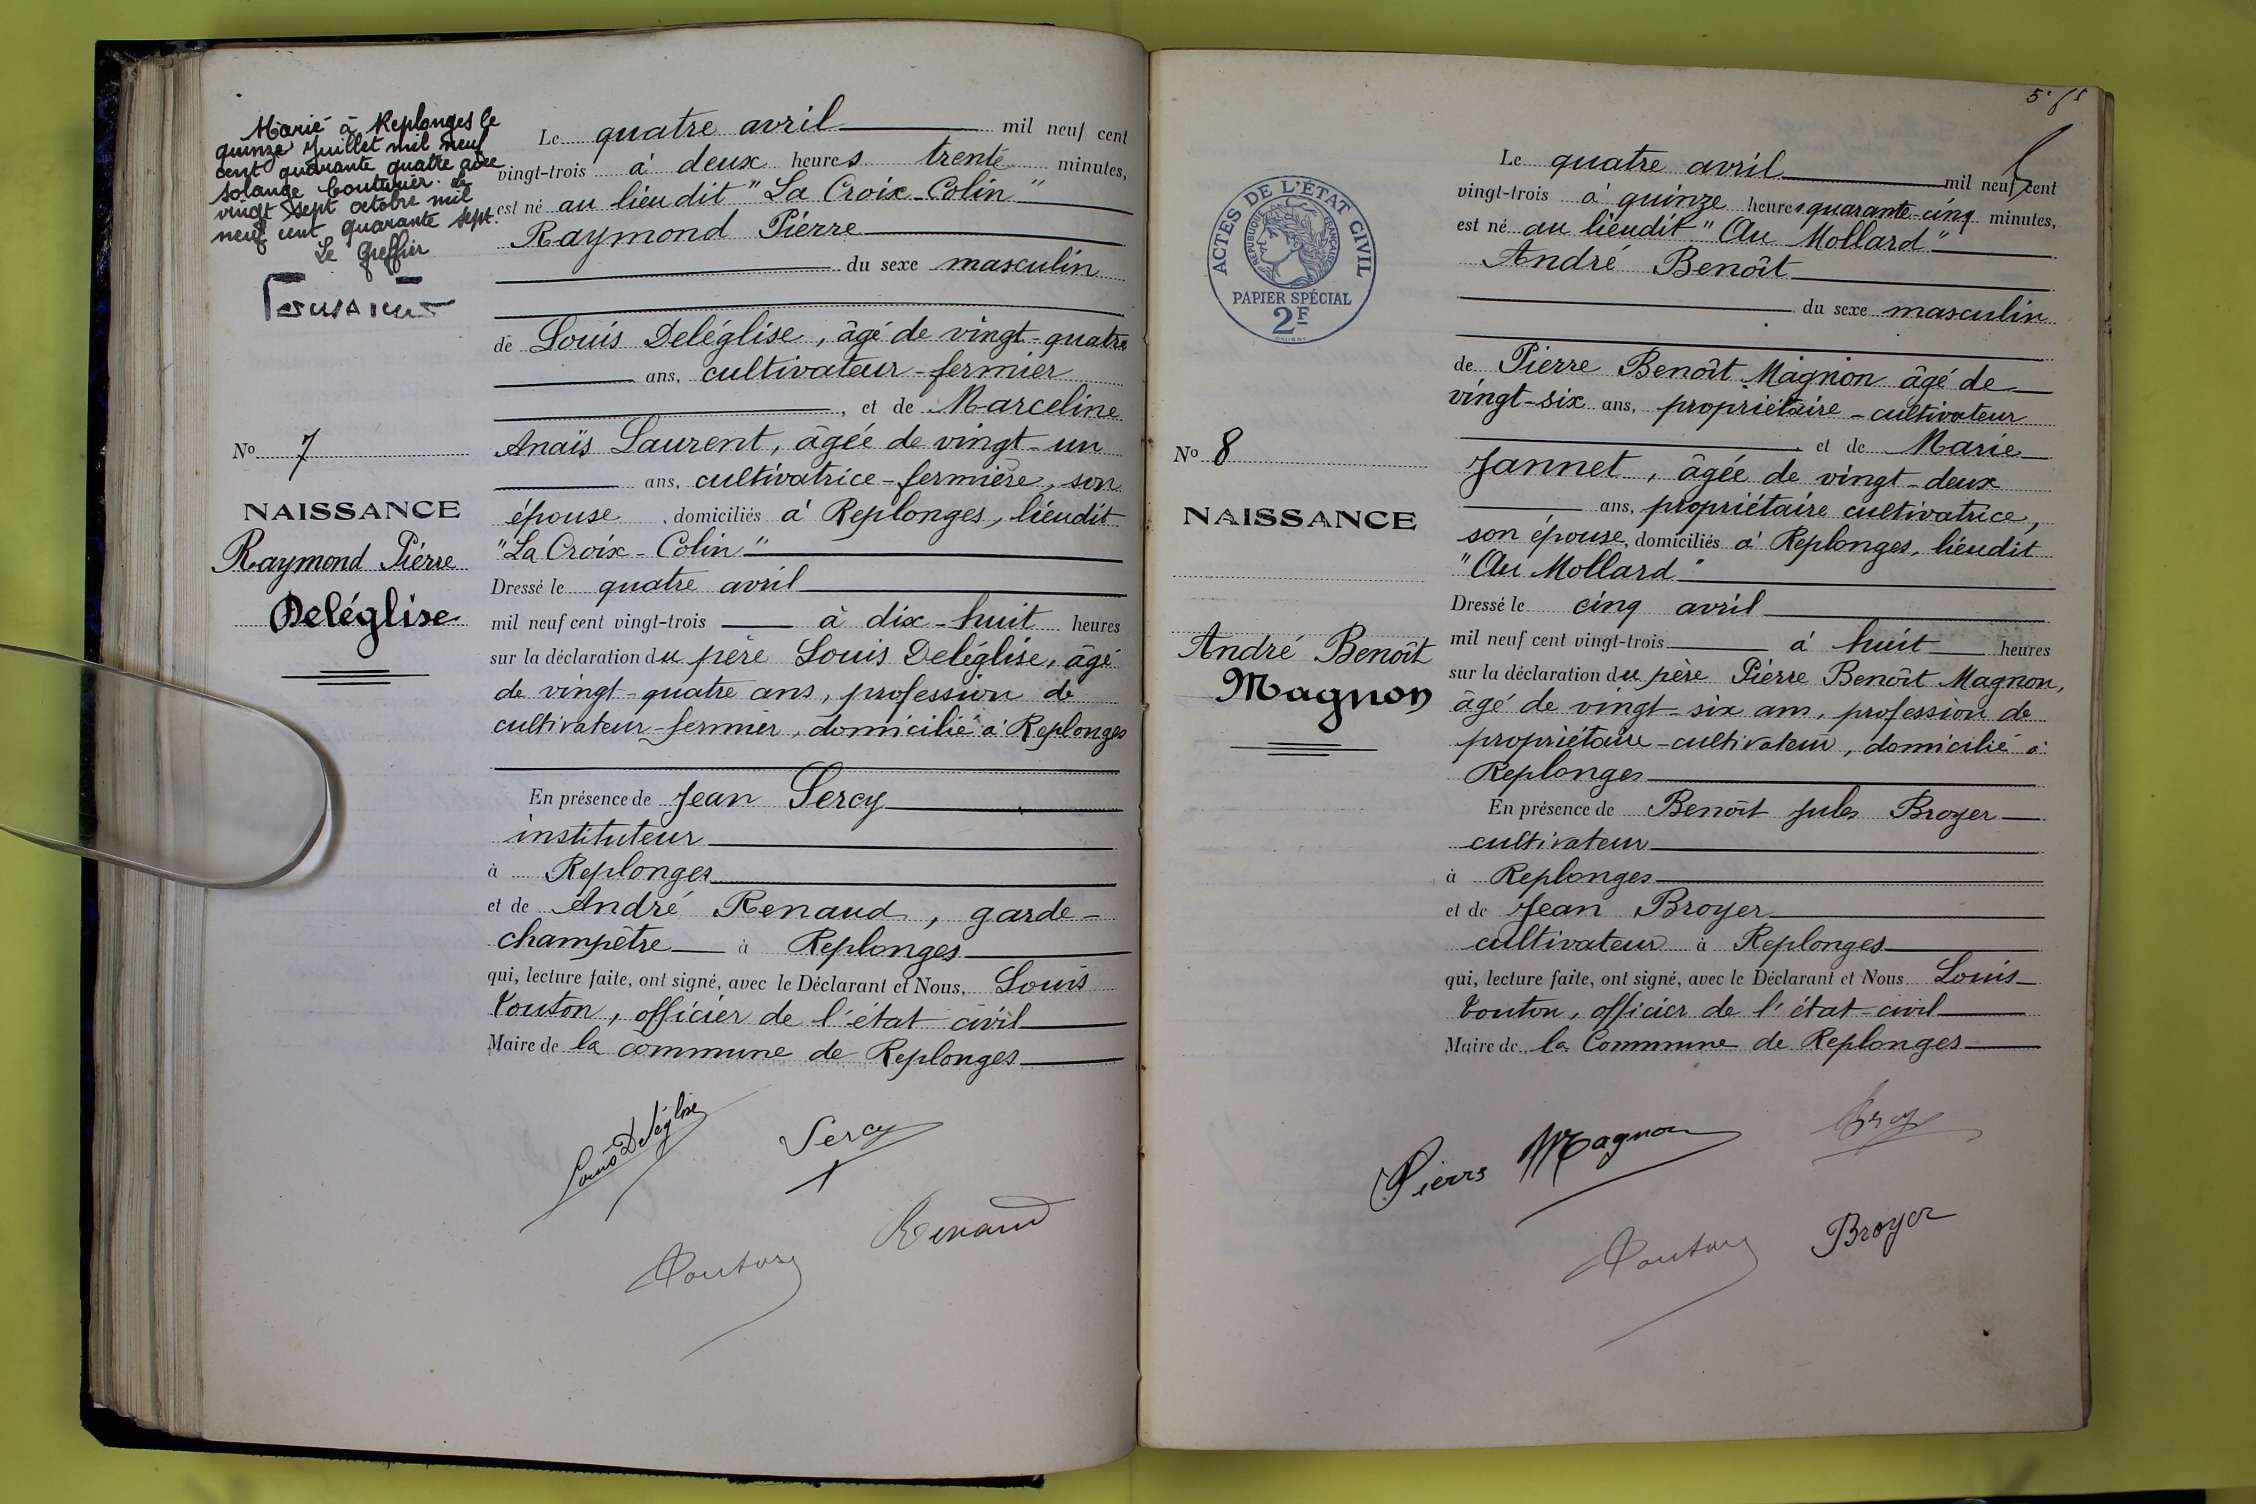 Marié à Replonges le
quinze Juillet mil neuf
cent quarante quatre avec
Solange Couturier. Le
vingt sept octobre mil
neuf cent quarante sept.
Le Greffier
No 7
NAISSANCE
Raymond Pierre
Deléglise
Le quatre avril mil neuf cent
vingt-trois à deux heures trente minutes,
est né au lieudit "La Croix-Colin"
Raymond Pierre
du sexe masculin
de Louis Deléglise, âgé de vingt-quatre
ans, cultivateur-fermier
, et de Marceline
Anaïs Laurent, âgée de vingt-un
ans, cultivatrice-fermière, son
épouse, domiciliés à Replonges, lieudit
"La Croix-Colin"
Dressé le quatre avril
mil neuf cent vingt-trois à dix-huit heures
sur la déclaration du père Louis Deléglise, âgé
de vingt-quatre ans, profession de
cultivateur-fermier, domicilié à Replonges
En présence de Jean Sercy
instituteur
à Replonges
et de André Renaud, garde-
champêtre à Replonges
qui, lecture faite, ont signé, avec le Déclarant et Nous, Louis
Touton, officier de l'état civil
Maire de la commune de Replonges
Louis Deléglise
Sercy
Renaud
Touton
5.
ACTES DE L'ÉTAT CIVIL
RÉPUBLIQUE FRANÇAISE
PAPIER SPÉCIAL
2F
No 8
NAISSANCE
André Benoît
Magnon
Le quatre avril mil neuf cent
vingt-trois à quinze heures quarante-cinq minutes,
est né au lieudit "Au Mollard"
André Benoît
du sexe masculin
de Pierre Benoît Magnon âgé de
vingt-six ans, propriétaire-cultivateur
et de Marie
Jannet, âgée de vingt-deux
ans, propriétaire cultivatrice,
son épouse, domiciliés à Replonges, lieudit
"Au Mollard"
Dressé le cinq avril
mil neuf cent vingt-trois à huit heures
sur la déclaration du père Pierre Benoît Magnon,
âgé de vingt-six ans, profession de
propriétaire-cultivateur, domicilié à
Replonges
En présence de Benoît Jules Broyer
cultivateur
à Replonges
et de Jean Broyer
cultivateur à Replonges
qui, lecture faite, ont signé, avec le Déclarant et Nous Louis
Touton, officier de l'état-civil
Maire de la Commune de Replonges
Pierre Magnon
Touton
Broyer